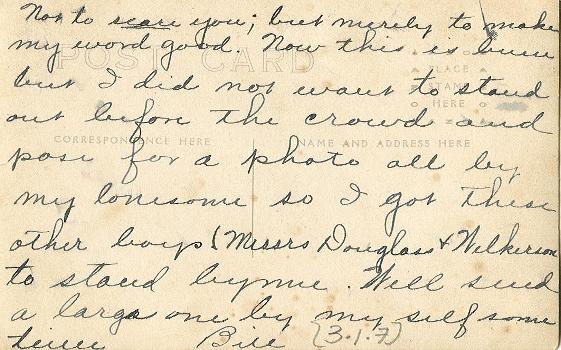 Not to scare you; but merely to make
my word good. Now this is bum
POST CARD
but I did not want to stand
PLACE
STAMP
HERE
out before the crowd and
CORRESPONDENCE HERE
NAME AND ADDRESS HERE
pose for a photo all by
my lonesome so I got these
other boys (Messrs Douglass & Wilkerson
to stand by me. Will send
a large one by my self some
time Bill (3.1.7)